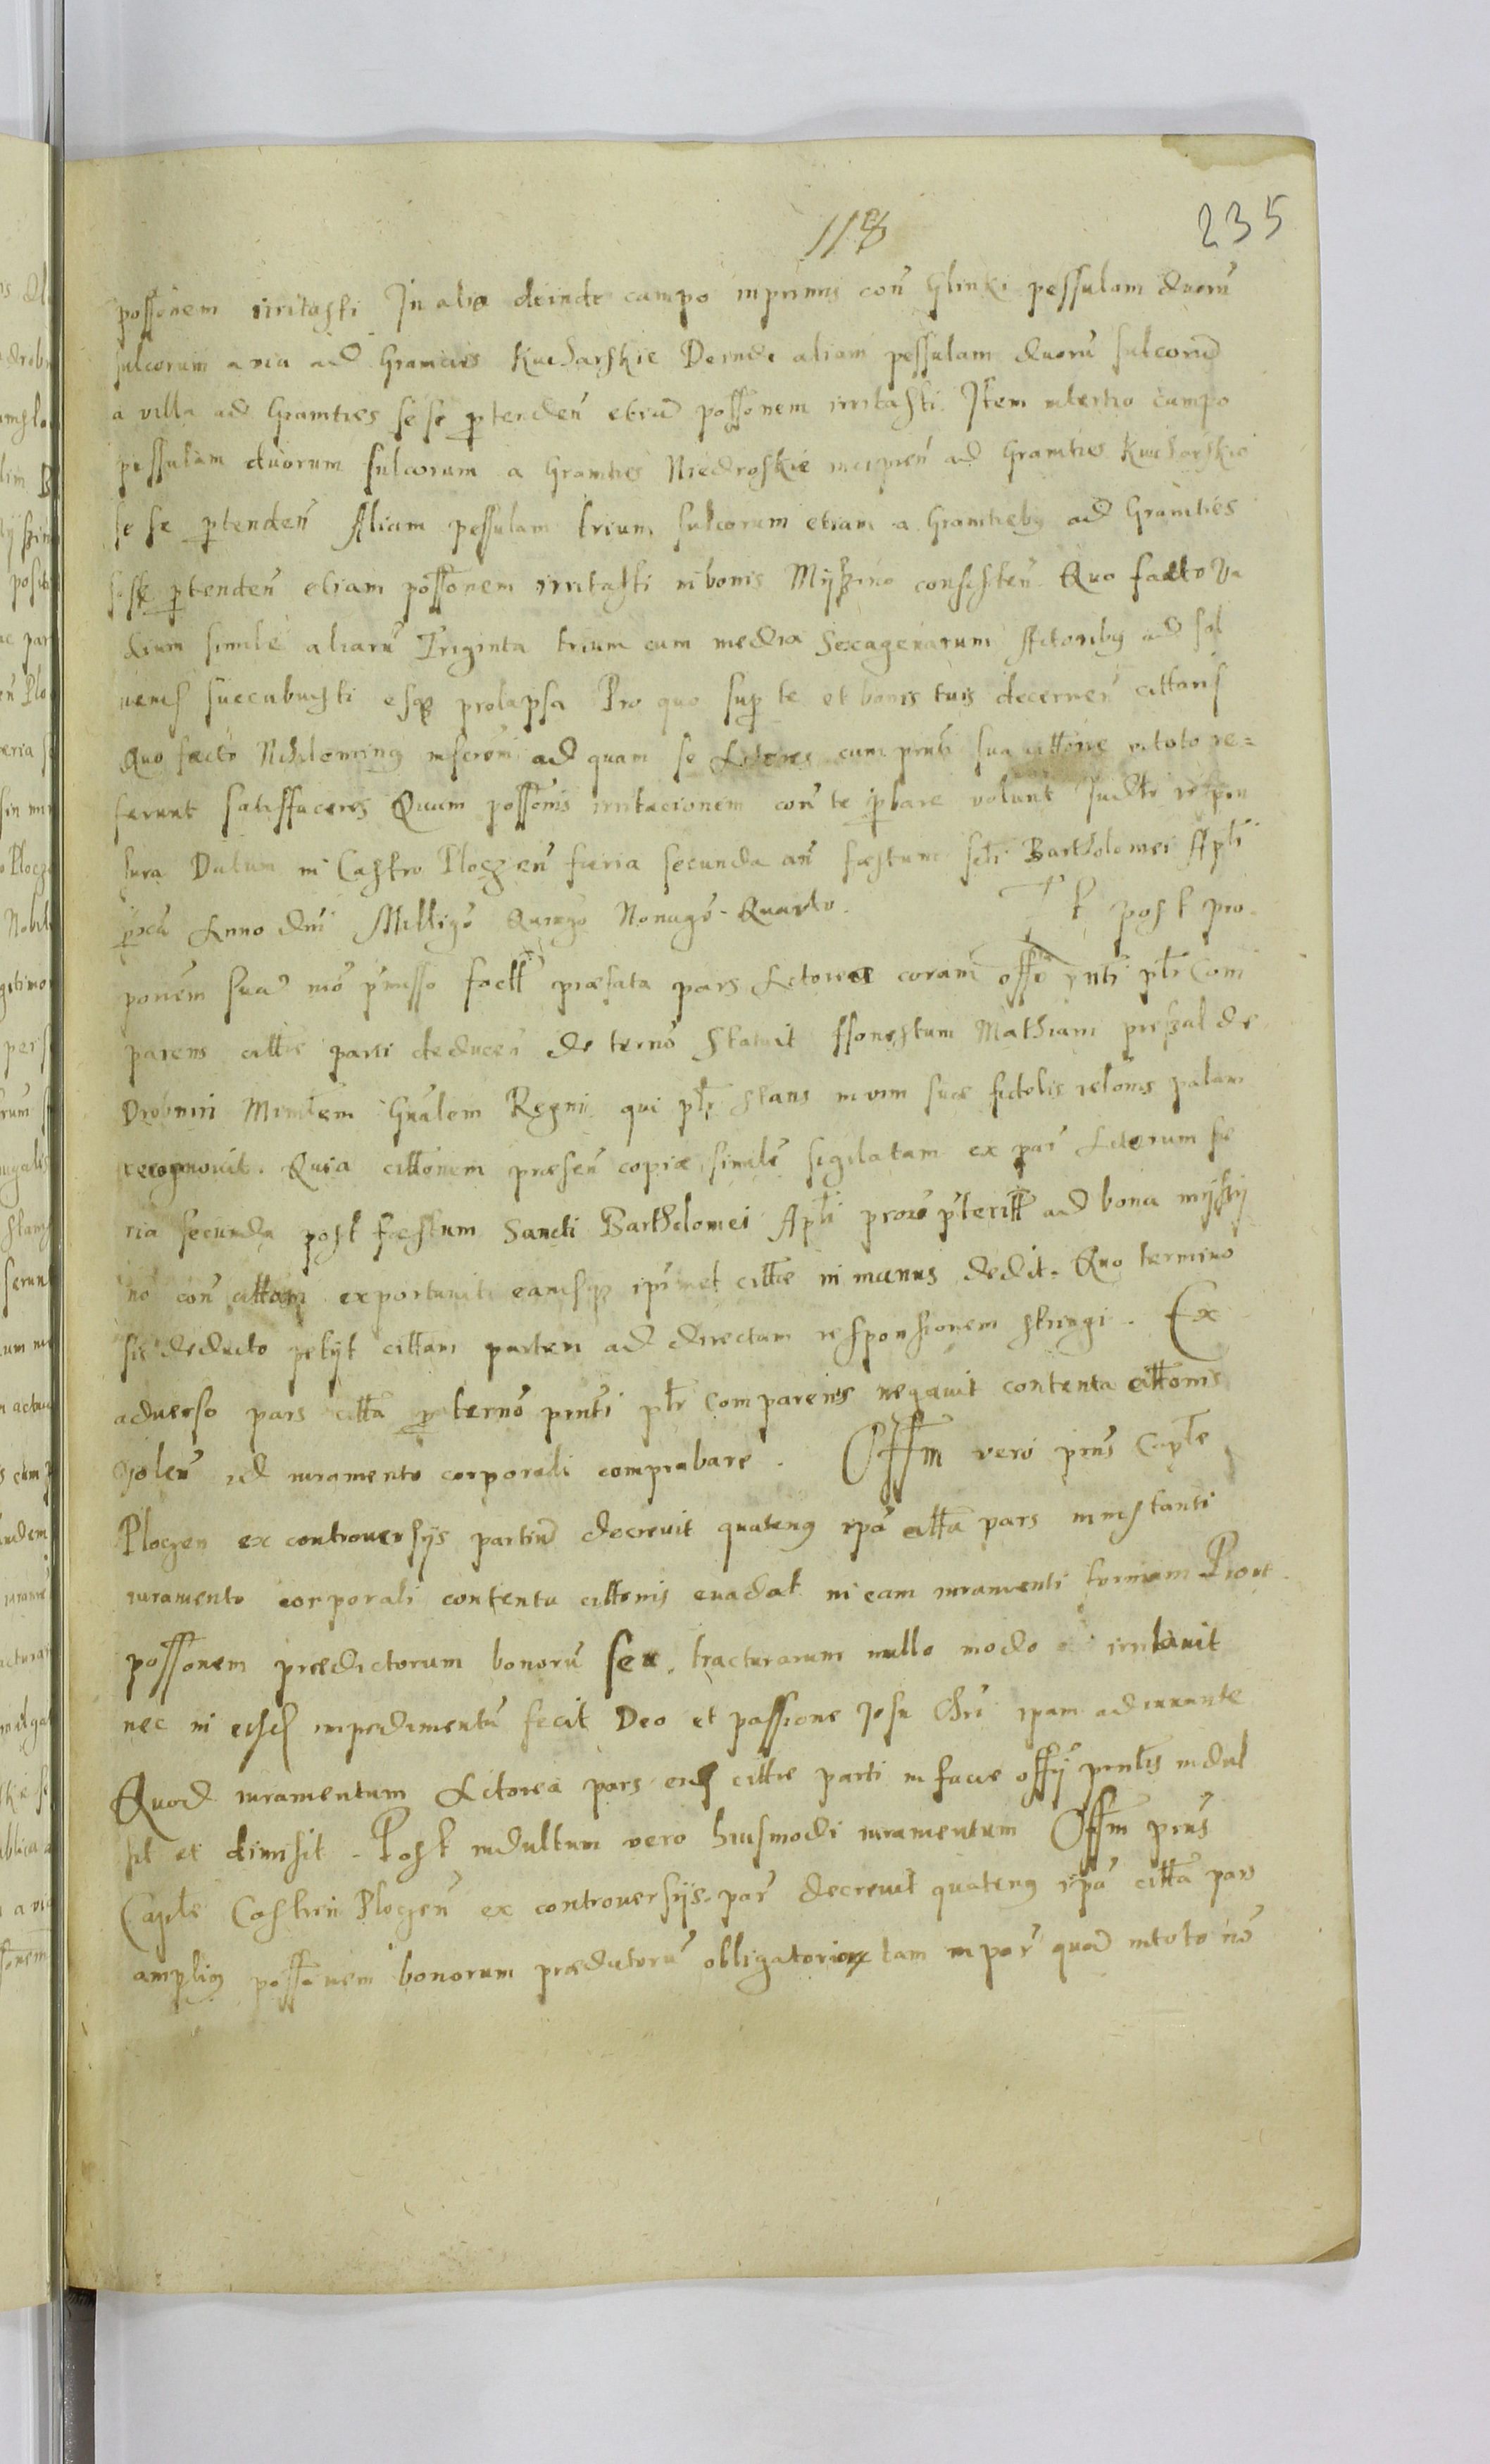 118
235
possonem irritasti In alio deinde campo inprimis con̄ Glinki pessulam duorū
sulcorum a via ad Granicies Kucharskie Deinde aliam pessulam duorū sulcorū
a villa ad Granities sese ꝑtenden̄ etiā possonem irritasti. Item in tertio campo
pessulam duorum sulcorum a Granities Niedroskie incipien̄ ad Granities Kucharskie
sese ꝑtenden̄ Aliam pessulam trium sulcorum etiam a Granitiebꝰ ad Granities
sese ꝑtenden̄ etiam possonem irritasti in bonis Myszino consisten̄ Quo facto Va
dium simile aliarū Triginta trium cum media Sexagenarum Actoribꝰ ad sol
vend succubuisti esqꝫ prolapsa Pro quo suꝑ te et bonis tuis decernen̄ cittaris
Quo facto Nihilominꝰ inscrōni ad quam se Actores cum prnti sua cittōne in toto re=
ferunt satisffaceres Quum possōnis irritacionem con̄ te ꝓbare volunt Judtr respon
sura Datum in Castro Plocen̄ feria secunda an̄ fæstum scti Bartholomei Apli
ꝓxa Anno dni Milligo Quingo Nonago Quarto. Et post pro
ponem suā mō p̄misso factt præfata pars Actorea coram offo prnti pltr Com
parens citte parti deducen̄ de ternō Statuit Honestum Mathiam preszal de
Drobnin Minlem Gnalem Regni qui pltr stans in vim suæ fidelis relōnis palam
recognouit. Quia cittōnem præsen̄ copiæ similē sigilatam ex par̄ Actorum fe
ria secunda post fæstum Sancti Bartholomei Apli proxe p̄teritt ad bona myszy
no con̄ cittam exportavit eamqꝫ ipimet citte in manus dedit. Quo termino
sic deducto petijt cittam partem ad directam responsionem stringi. Ex
adverso pars citta ꝑ ternō prnti pltr Comparens negavit contenta cittonis
volen̄ id iuramento corporali comprobare. Offm vero prns Caple
Plocen ex controversijs partiū decrevit quatenꝰ ipā citta pars in instanti
iuramento corporali contenta cittonis evadat in eam iuramenti formam Prout
possonem prædictorum bonorū seu tracturarum nullo modo irritavit
nec in eisd impedimentū fecit Deo et passione Jesu Chri ipam adiuvante
Quod iuramentum Actorea pars eid citte parti in facie offij prntis indul
sit et dimisit. Post indultum vero huismodi iuramentum Offm prns
Caple Castren Plocen̄ ex controversijs par̄ decrevit quatenꝰ ipā citta pars
ampliꝰ possonem bonorum prædictorū obligatoriorꝫ tam in par̄ quā in toto nō